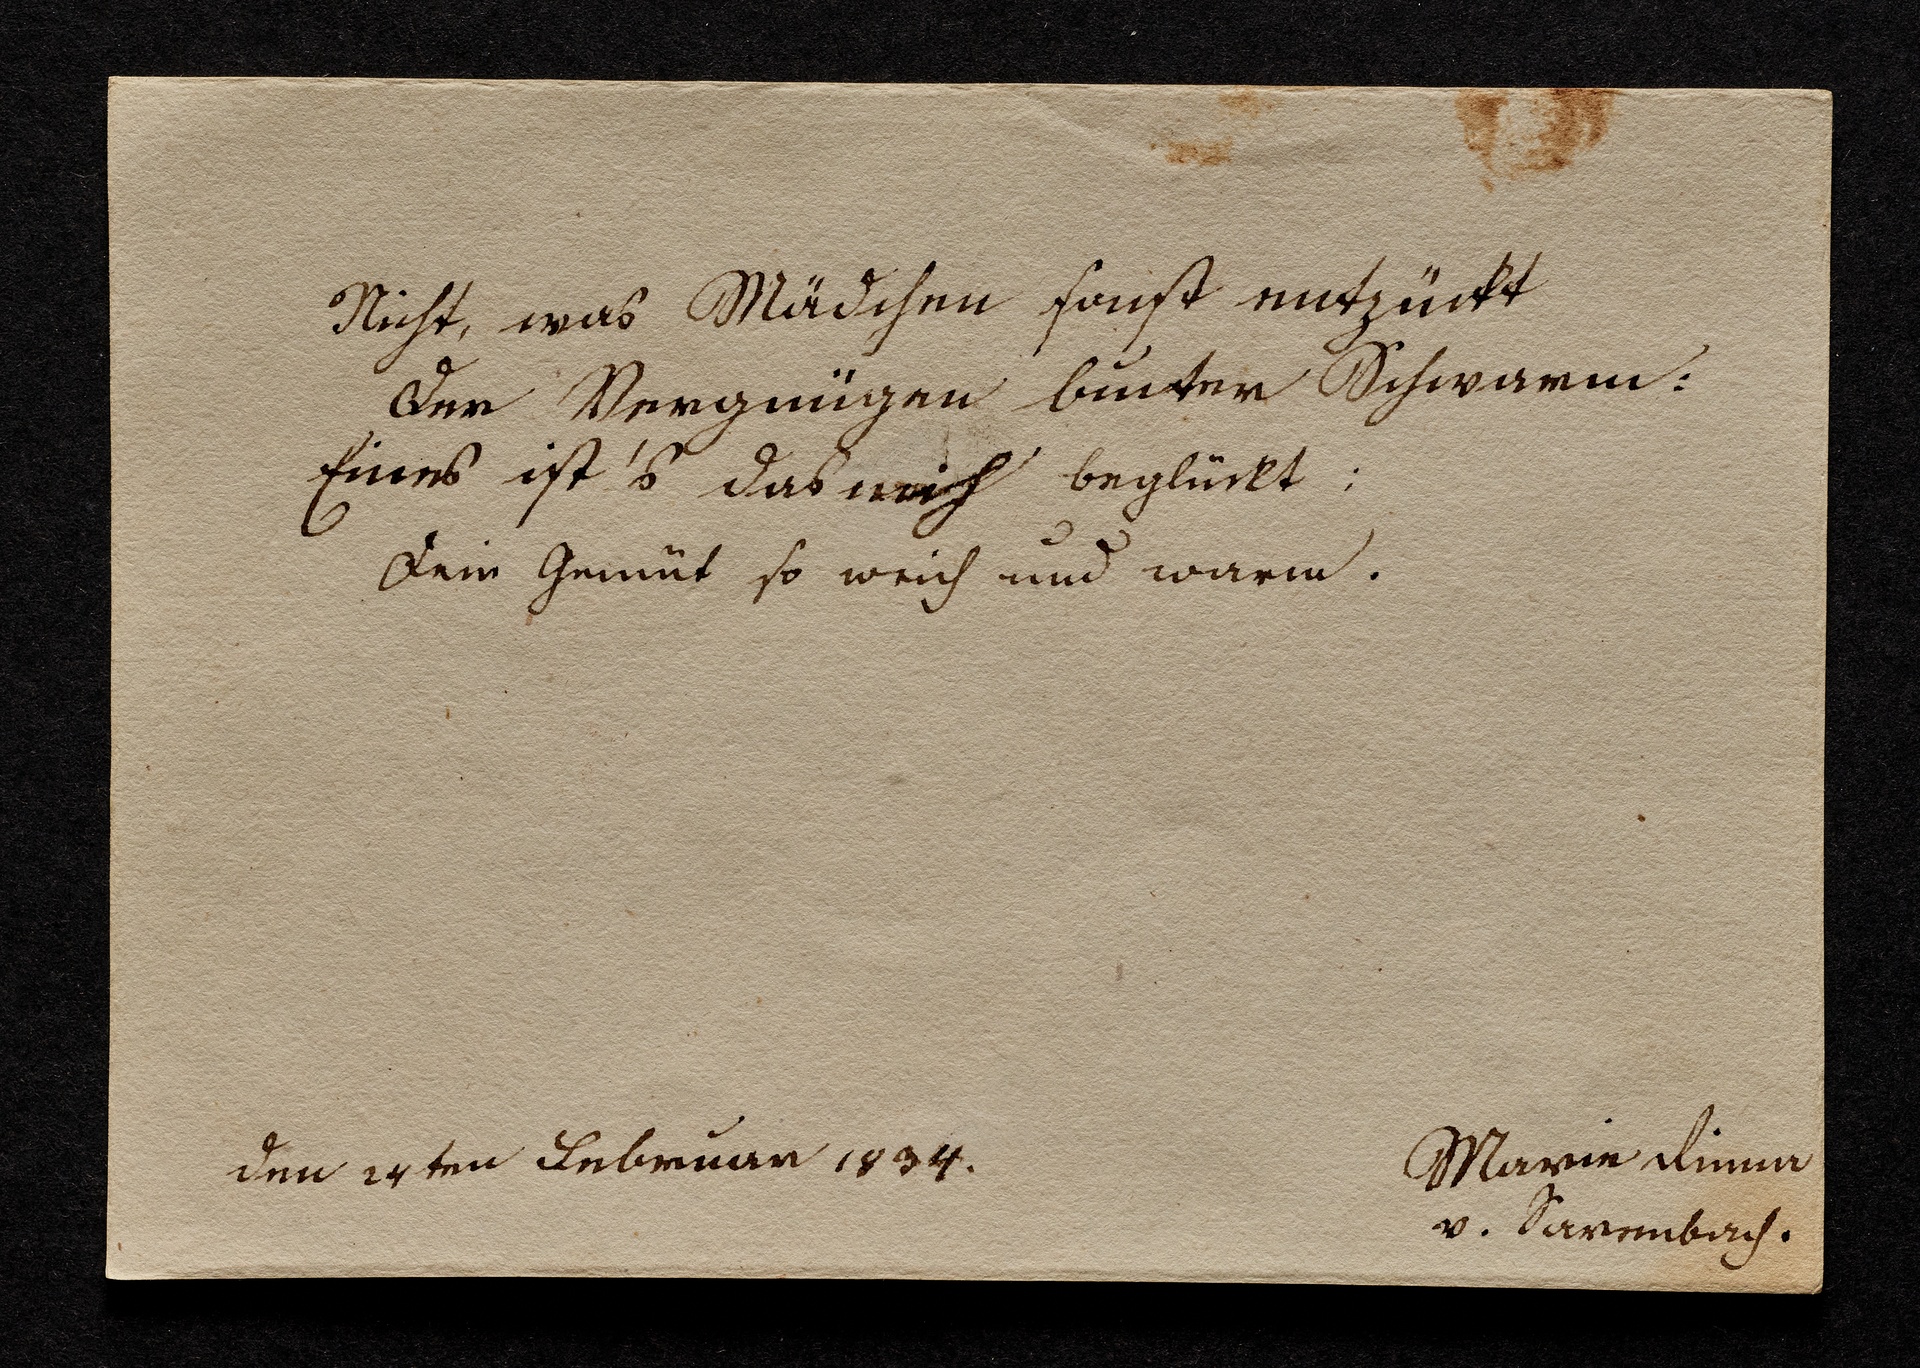 Nicht, was Mädchen sonst entzückt
Der Vergnügen bunter Schwarm:
Eines ist's das mich beglückt:
Dein Gemüt so weich und warm.
den ten Februar 1834.
Marie
v.